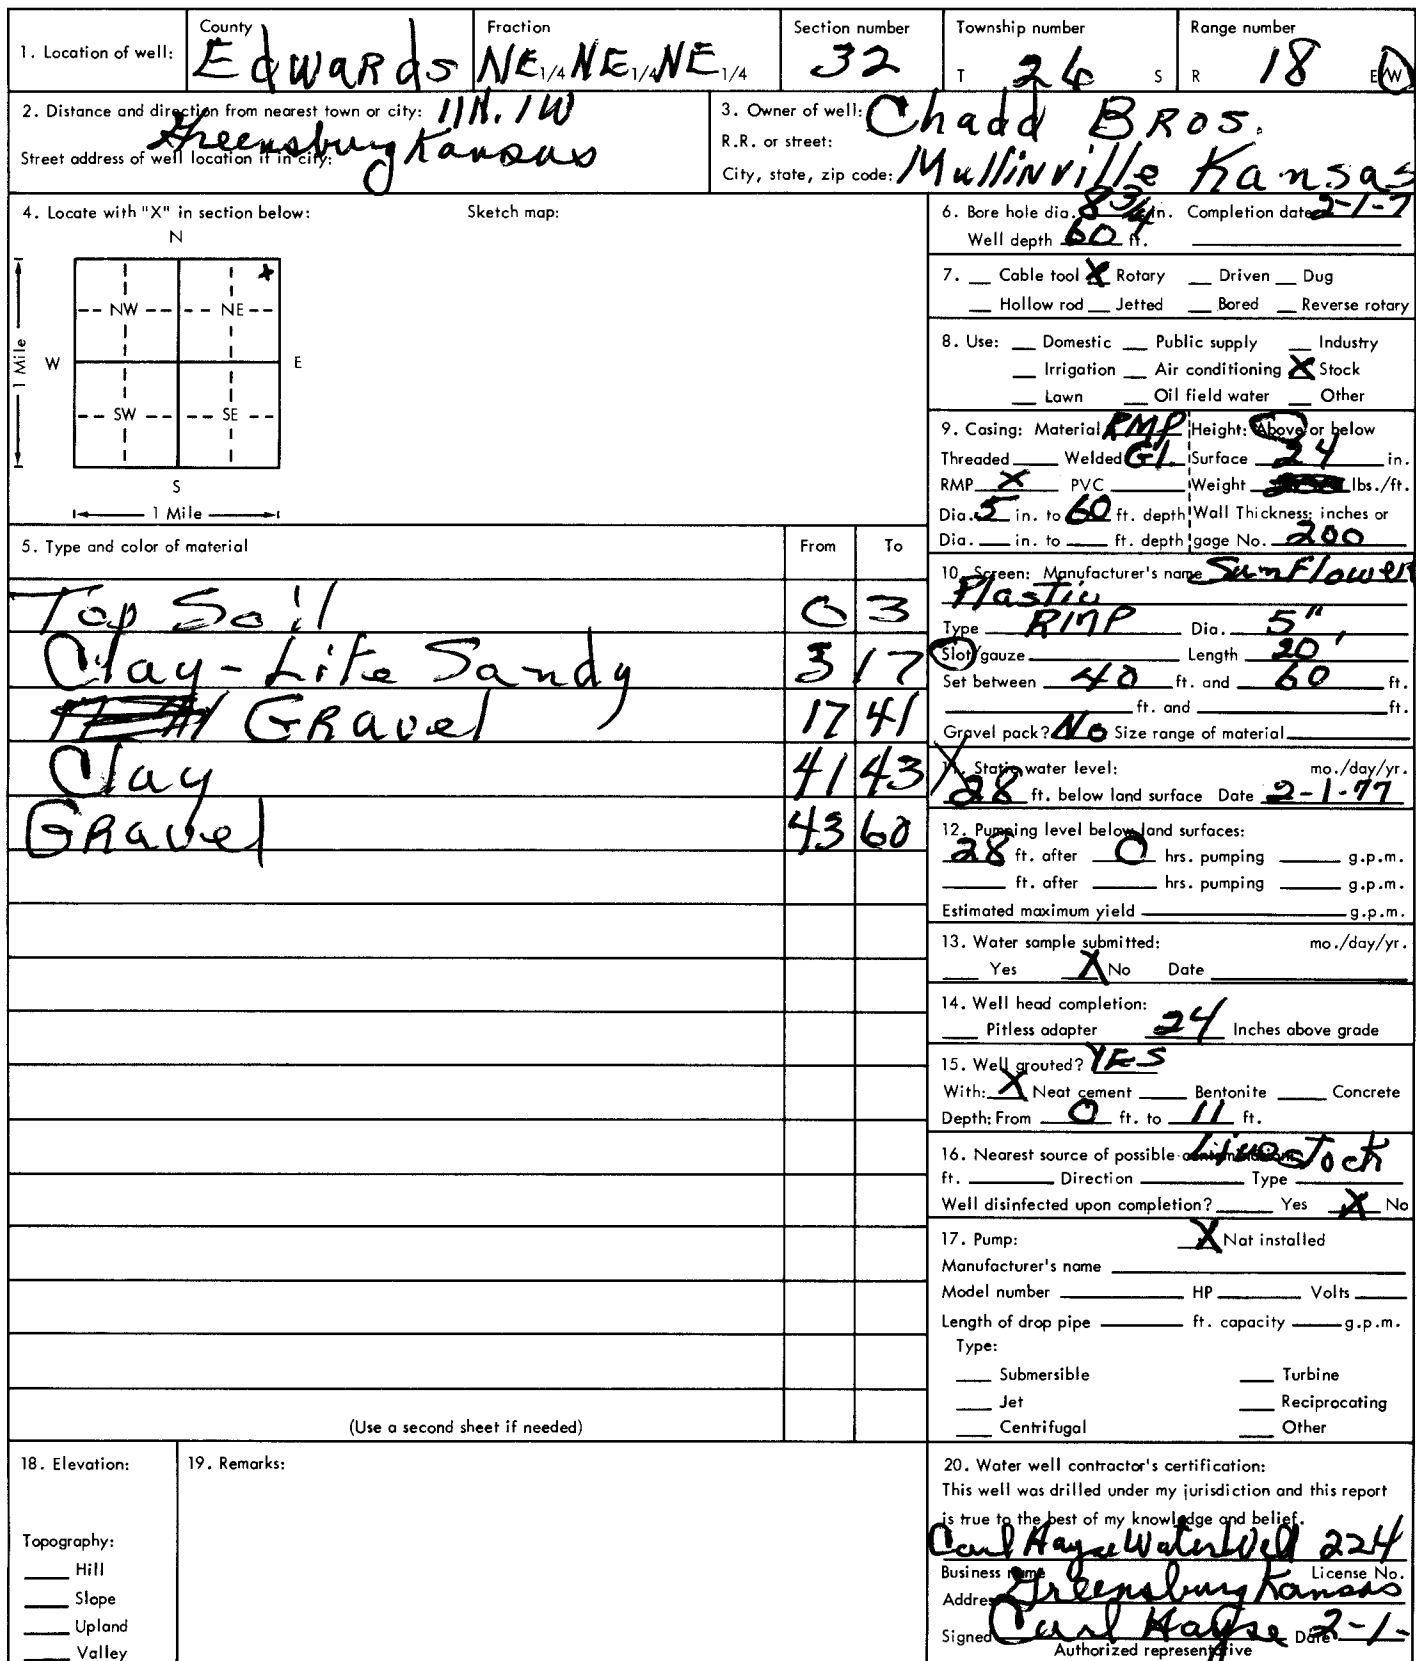 1. Location of well: County Edwards Fraction NE 1/4 NE 1/4 NE 1/4 Section number 32 Township number T 26 S Range number R 18 E/W
2. Distance and direction from nearest town or city: 11N. 1W
Greensburg Kansas
Street address of well location if in city:
3. Owner of well: Chadd Bros.
R.R. or street:
City, state, zip code: Mullinville Kansas
4. Locate with "X" in section below: Sketch map:
N
X
NW NE
W E
SW SE
S
1 Mile
1 Mile
5. Type and color of material From To
Top Soil 0 3
Clay - Lite Sandy 3 17
Gravel 17 41
Clay 41 43
Gravel 43 60
(Use a second sheet if needed)
6. Bore hole dia. 8 3/4 in. Completion date 2-1-7
Well depth 60 ft.
7. Cable tool X Rotary Driven Dug
Hollow rod Jetted Bored Reverse rotary
8. Use: Domestic Public supply Industry
Irrigation Air conditioning X Stock
Lawn Oil field water Other
9. Casing: Material RMP Height: Above or below
Threaded Welded Gl. Surface 24 in.
RMP X PVC Weight lbs./ft.
Dia. 5 in. to 60 ft. depth Wall Thickness: inches or
Dia. in. to ft. depth gage No. 200
10. Screen: Manufacturer's name Sunflower
Plastic
Type RMP Dia. 5"
Slot/gauze Length 20'
Set between 40 ft. and 60 ft.
ft. and ft.
Gravel pack? No Size range of material
11. Static water level: mo./day/yr.
28 ft. below land surface Date 2-1-77
12. Pumping level below land surfaces:
28 ft. after 0 hrs. pumping g.p.m.
ft. after hrs. pumping g.p.m.
Estimated maximum yield g.p.m.
13. Water sample submitted: mo./day/yr.
Yes X No Date
14. Well head completion:
Pitless adapter 24 Inches above grade
15. Well grouted? YES
With: X Neat cement Bentonite Concrete
Depth: From 0 ft. to 11 ft.
16. Nearest source of possible contamination: Livestock
ft. Direction Type
Well disinfected upon completion? Yes X No
17. Pump: X Not installed
Manufacturer's name
Model number HP Volts
Length of drop pipe ft. capacity g.p.m.
Type:
Submersible Turbine
Jet Reciprocating
Centrifugal Other
18. Elevation:
Topography:
Hill
Slope
Upland
Valley
19. Remarks:
20. Water well contractor's certification:
This well was drilled under my jurisdiction and this report
is true to the best of my knowledge and belief.
Carl Hayse Water Well 224
Business name License No.
Address Greensburg Kansas
Signed Carl Hayse Date 2-1-
Authorized representative